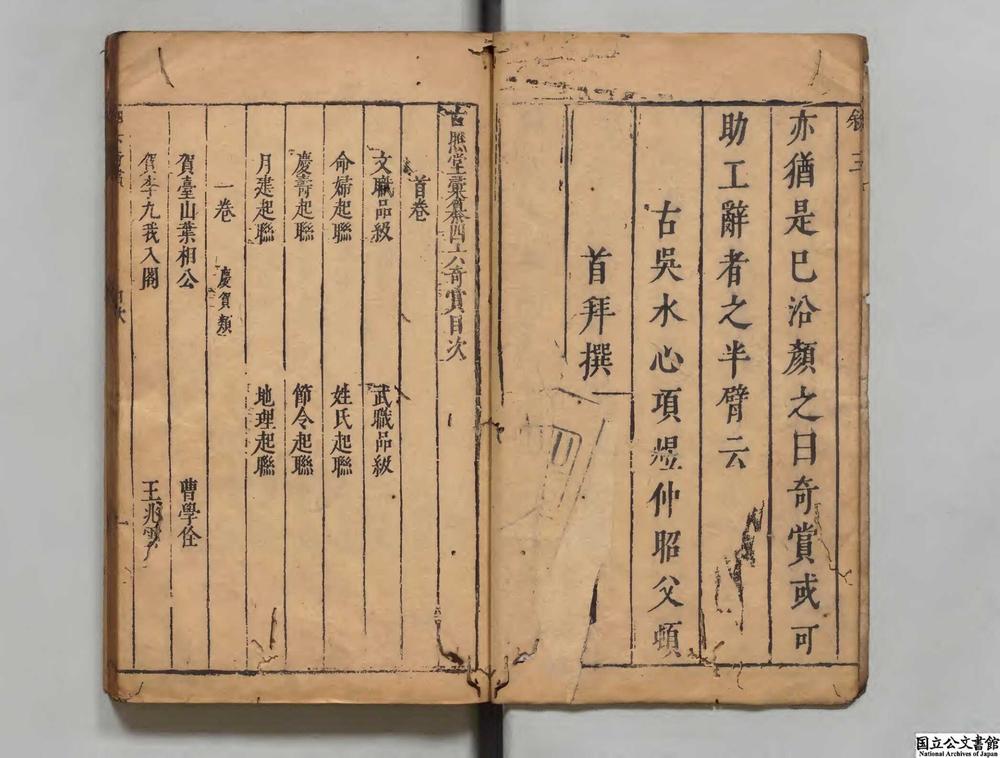 亦猶是已沿顏之曰奇賞或可
助工辭者之半臂云
古吳水心項煜仲昭父頓
首拜撰
古照堂彙纂四六奇賞目次
首卷
文職品級 武職品級
命婦起聯 姓氏起聯
慶壽起聯 節令起聯
月建起聯 地理起聯
一卷 慶賀類
賀臺山葉相公 曹學佺
賀李九我入閣 王兆雲
国立公文書館
National Archives of Japan